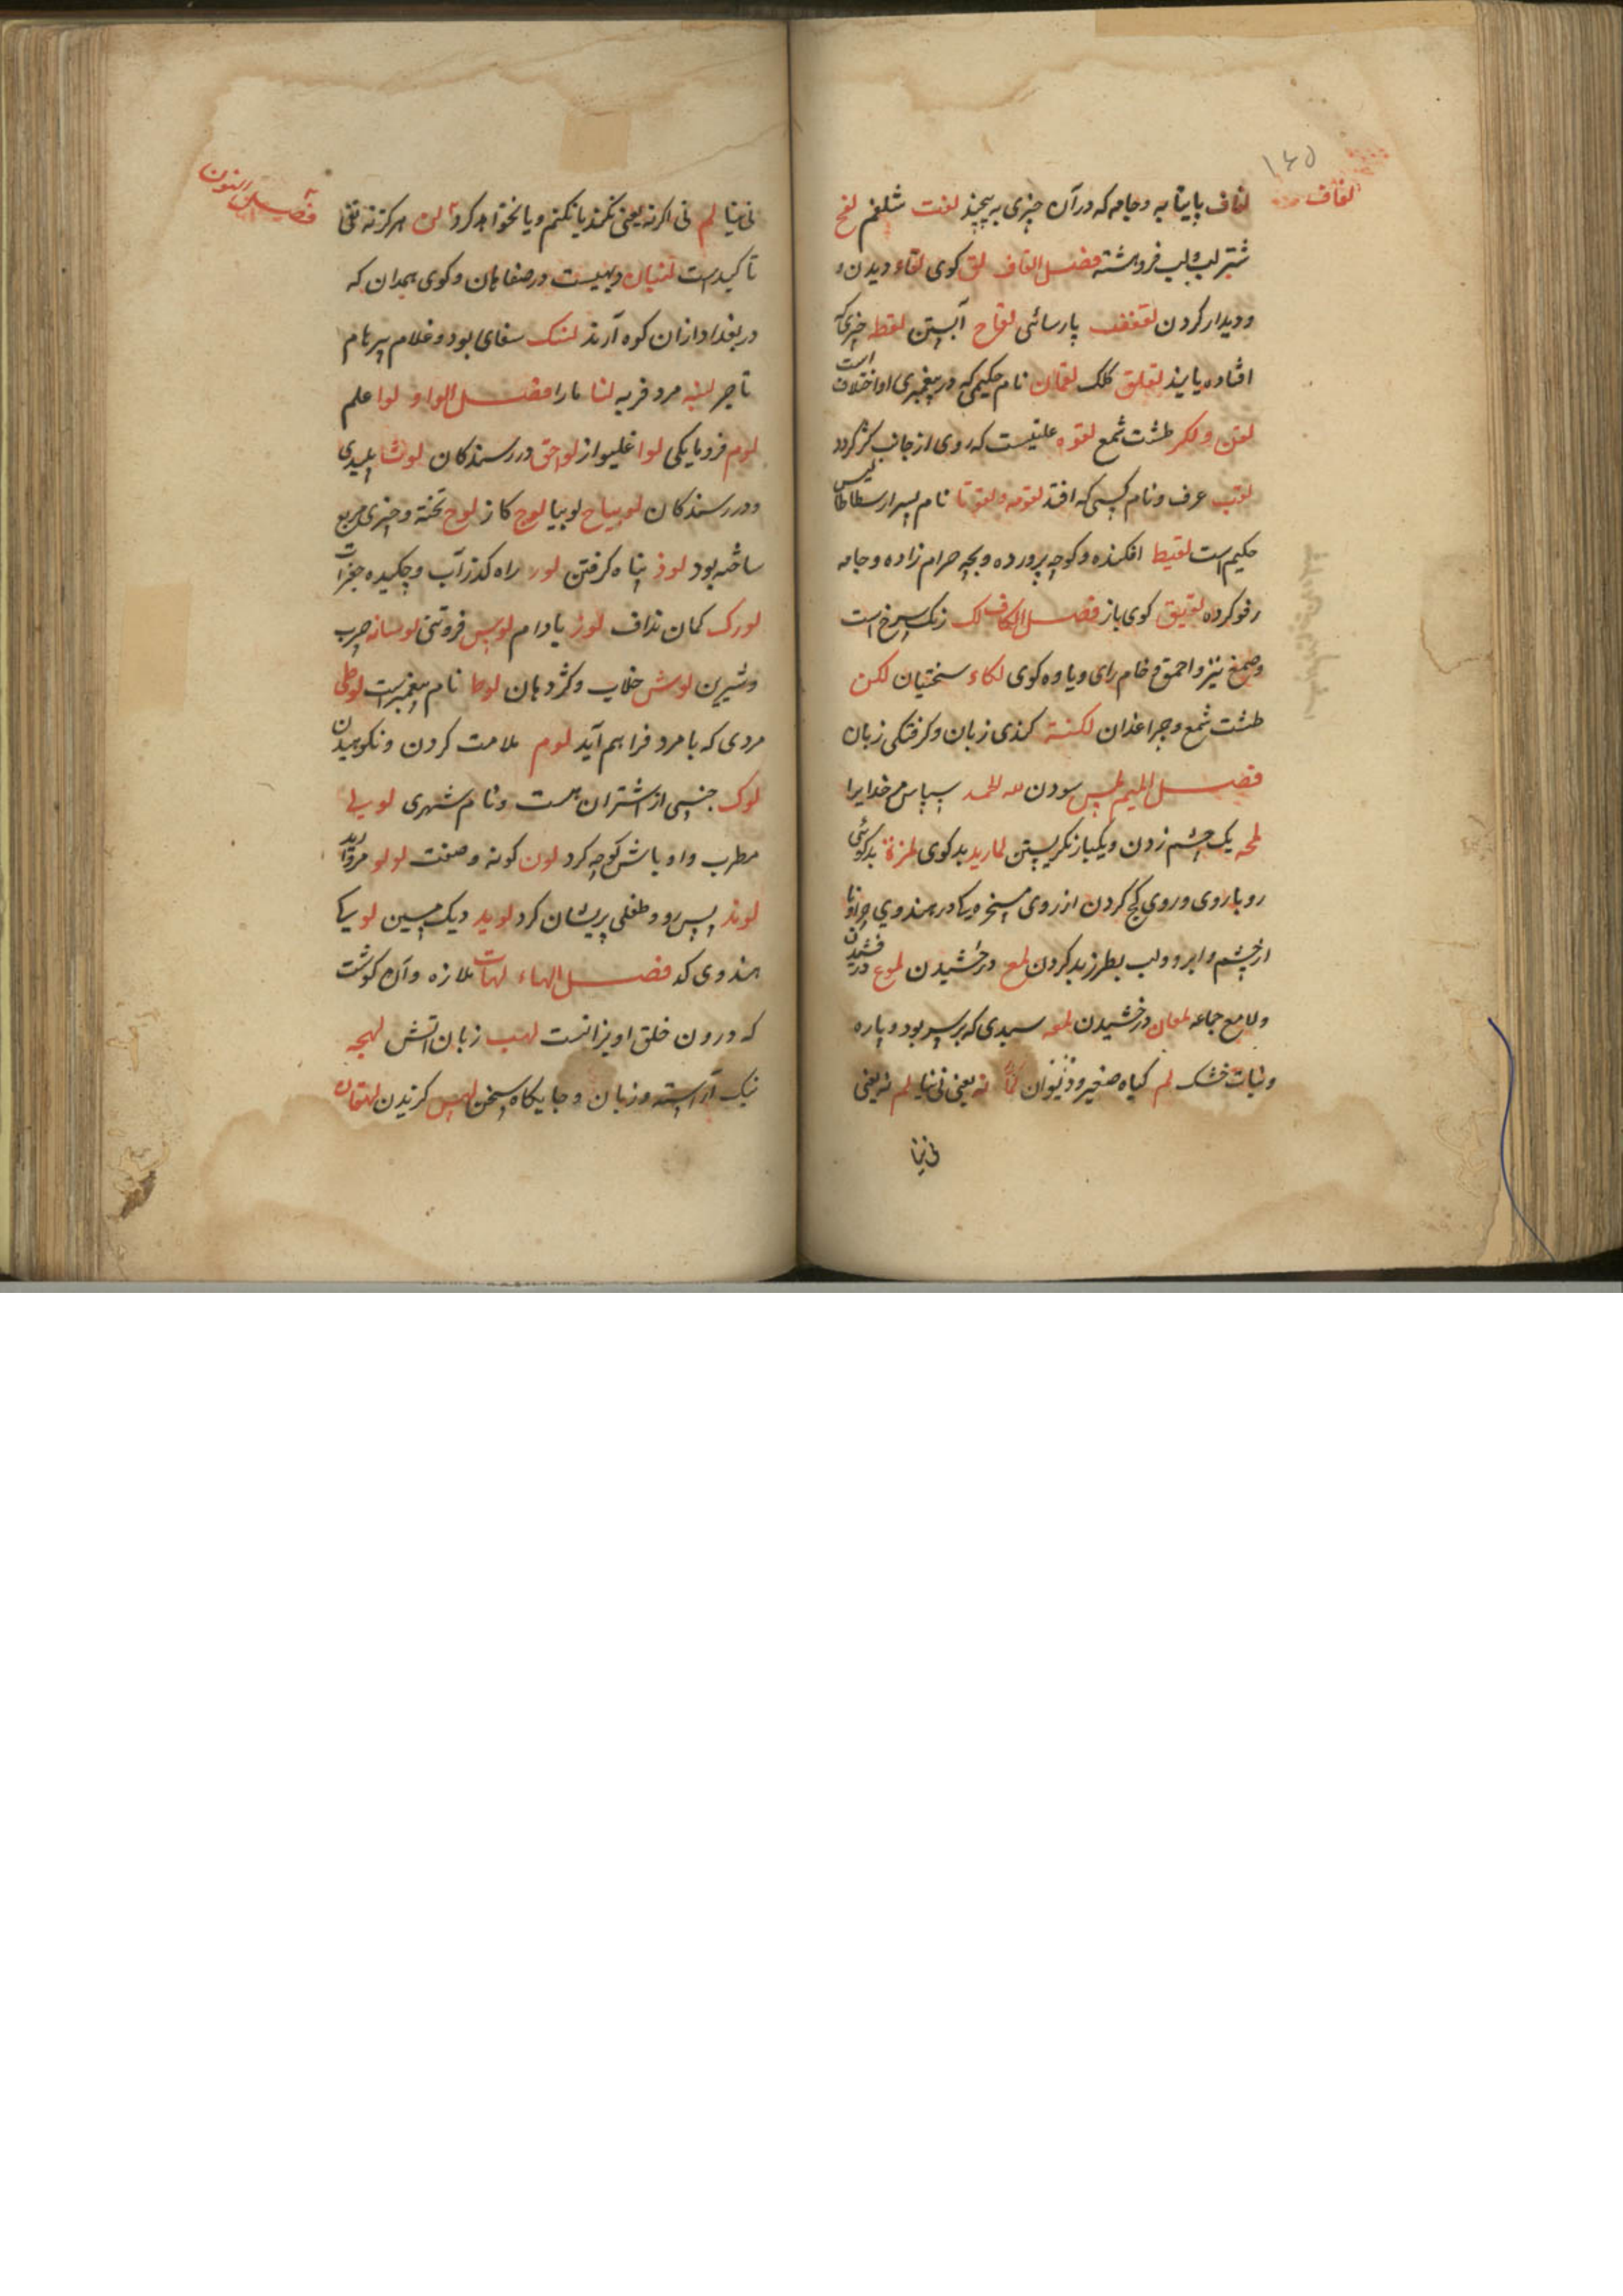 ۱۶۵
لفاف
لفاف پایتابه و جامه که در آن چیزی به پیچند لفت شلغم لفح
شتر لب بلب فروهشته فصل القاف لق کوی لقاء دیدن و
و دیدار کردن پارسائی لقاح آبستن لقط چیزیکه
افتاده یابند لقلق کلک لقمان نام حکیمی که در پیغمبری او اختلاف است
لقن و لکر طشت شمع لقوه علتیست که روی از جانب کژ گردد
لقب عرف و نام کسی که افتد لقومه و لقوتا نام پسر ارسطاطالیس
حکیم است لقیط افکنده و کوچه پرورده و بچه حرام زاده و جامه
رفو کرده لقیق کوی باز فصل الکاف لک رنک سرخ است
و صمغ نیز و احمق و خام رای و یاوه کوی لکاء سختیان لکن
طشت شمع و چراغدان لکنة کندی زبان و کرفتکی زبان
فصل المیم لمس سودن لله الحمد سپاس مر خدایرا
لمحه یک چشم زدن و یکبار نکریستن لمارید بد کوی لمزة بد کوئی
رو باروی و روی کج کردن از روی مسخره یکا در هندوی
از چشم و ابرو و لب بطرز بد کردن لمع درخشیدن لموع درفشیدن
و لامع جماعه لمعان درخشیدن لمعه سپیدی که بر سر بود و پاره
و نبات خشک لم کیاه صغیر و لما نه یعنی نی نیا لم نه یعنی
نی نیا
فصل النون
نی نیا لم نی اگر نه یعنی نکند یا نکنم و یا نخواهد کرد لن هرکز نه نفی
تاکیدست لنبان دیهیست در صفاهان و کوی همدان که
در بغداد ازان کوه آرند لنبک سقای بود و غلام پیر نام
تاجر لنبه مرد فربه لنا مارا فصل الواو لوا علم
لوم فرومایکی لوا غلیواز لواحق دررسندکان لوثا پلیدی
و دررسندکان لوبیاح لوبیا لوج کاژ لوح تخته و چیزی مربع
ساخته بود لوذ پناه کرفتن لور راه کذر آب و چکیده جغرات
لورک کمان نداف لوز بادام لوس فروتنی لوسانه چرب
و شیرین لوش خلاب و کژ دهان لوط نام پیغمبرست لوطی
مردی که با مرد فراهم آید لوم ملامت کردن و نکوهیدن
لوک جنسی از اشتران هست و نام شهری لولی
مطرب و اوباش کوچه کرد لون کونه و صفت لولو مروارید
لوند پس رو و طفلی پریشان کرد لوید دیک مسین لویکا
هندوی کد فصل الهاء لهات ملازه و آن کوشت
که درون خلق اویزانست لهب زبان آتش لهجه
نیک آراسته و زبان و جایکاه سخن لهس کزیدن لهقان